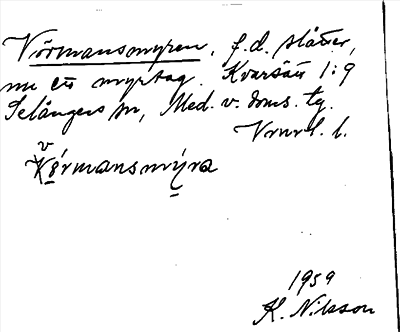 Vörmansmyren, f.d. slåtter,
nu en myrtag. Kvarsätt 1:9
Selångers sn, Med. v. doms. tg.
Vnrl. l.
v
Körmansmýra
1959
K. Nilsson